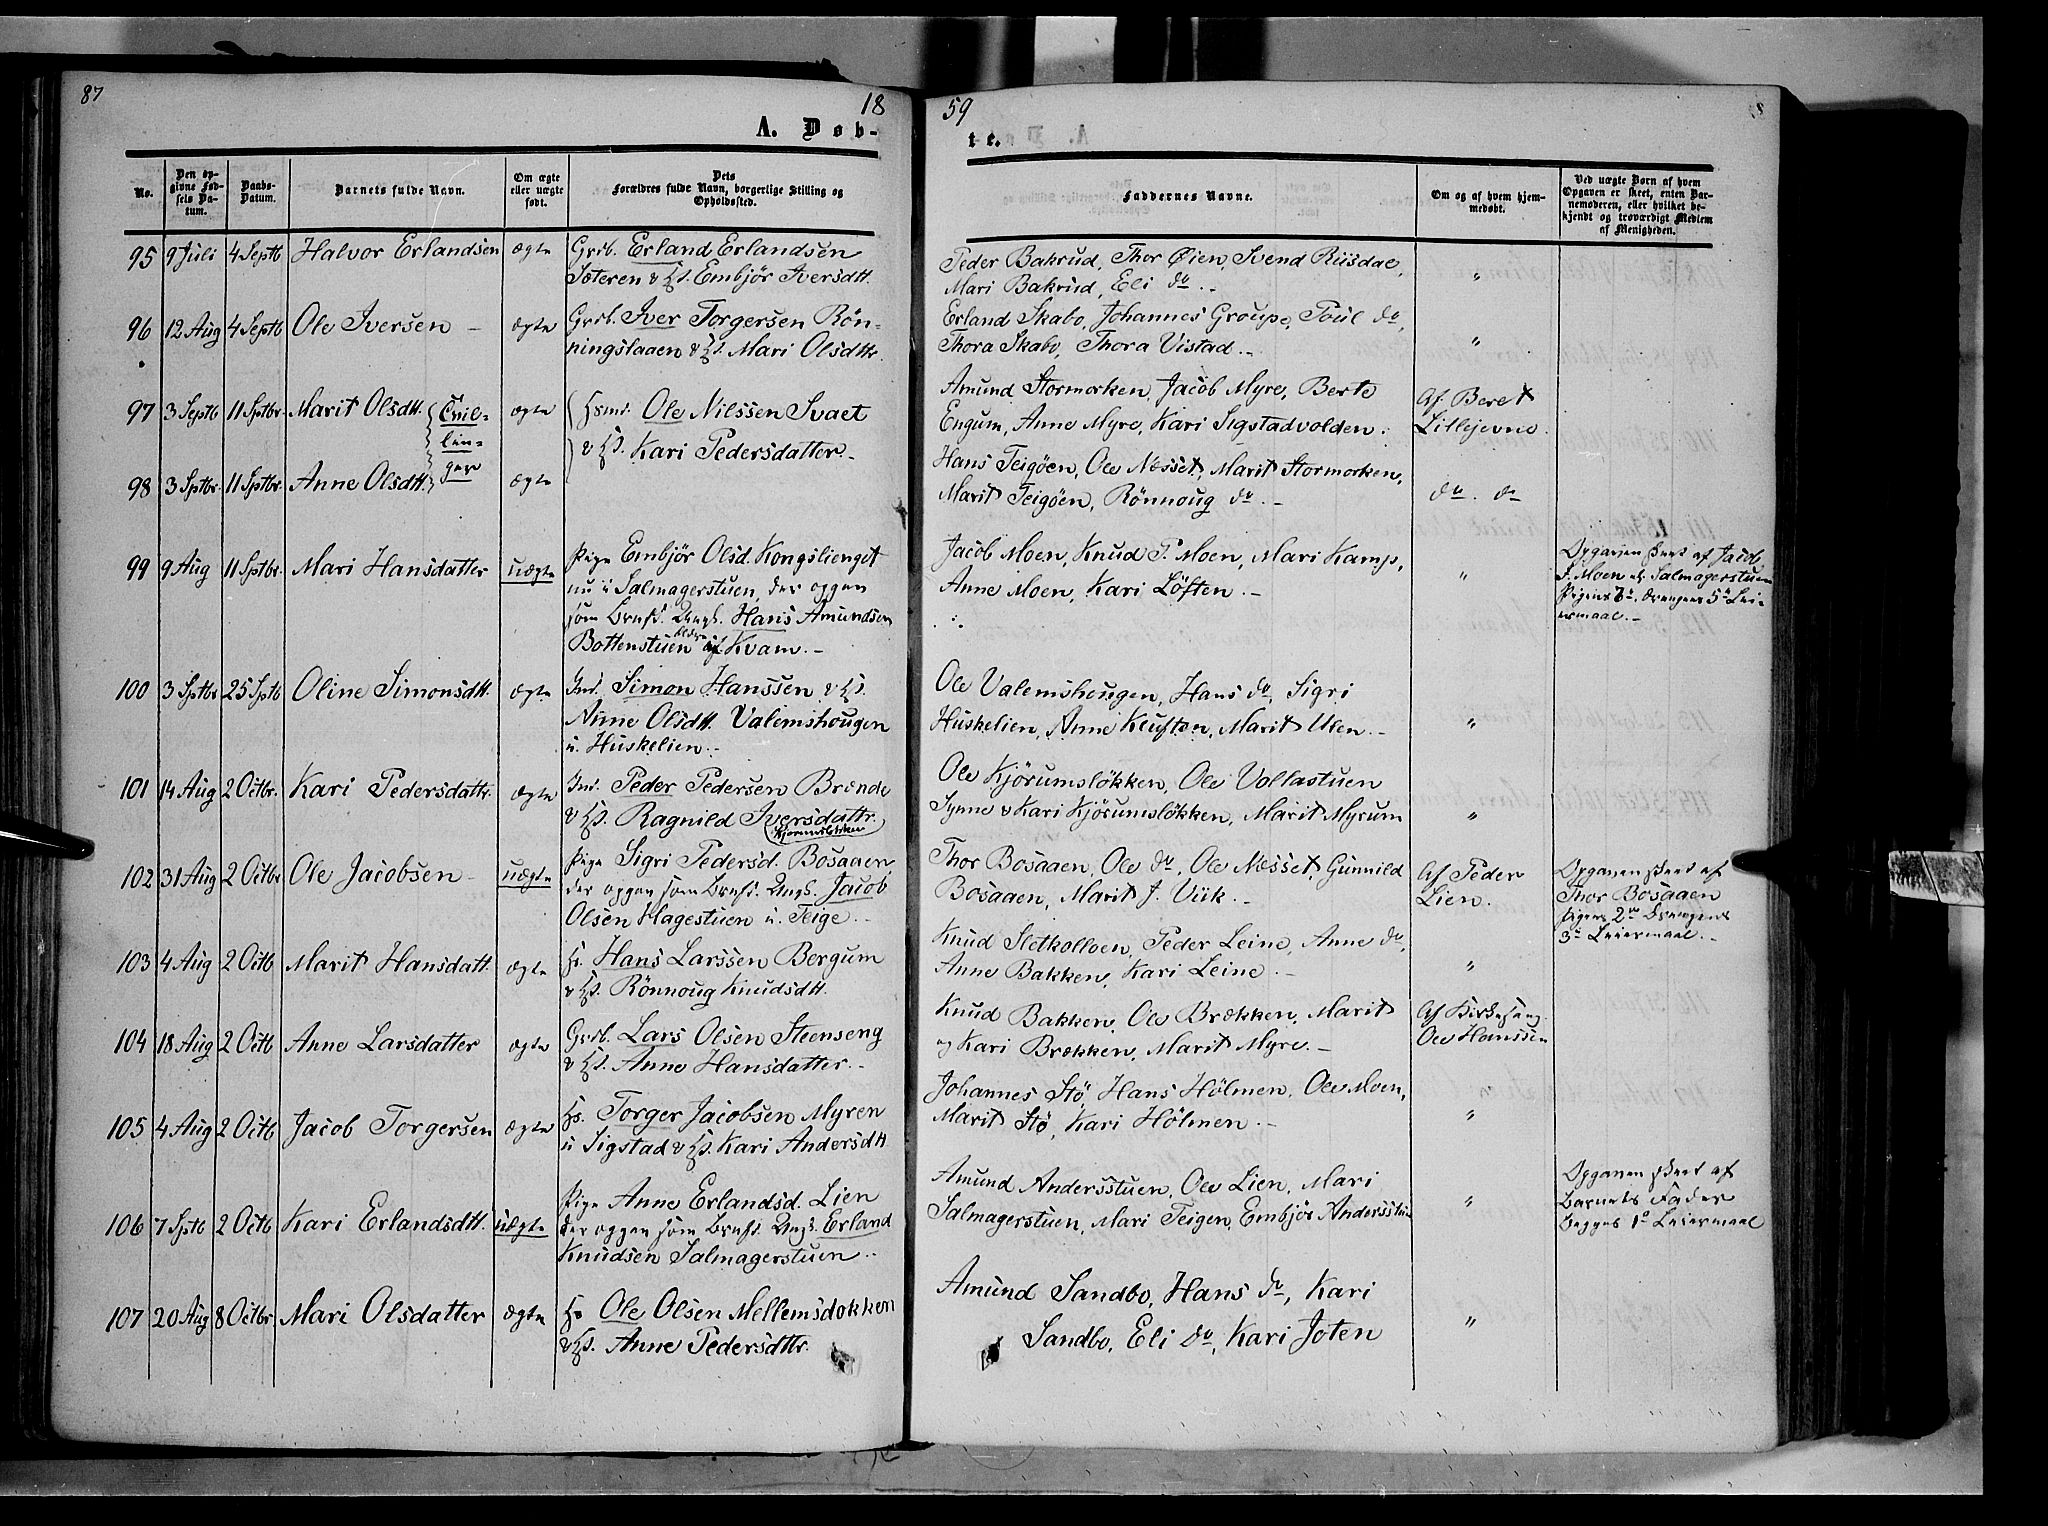 87
18
A. Døb-
No.
Den op-
givne Fød-
sels Da-
tum.
Daabs-
Datum.
Barnets fulde Navn.
Om ægte
eller uægte
født.
Dets
Forældres fulde Navn, borgerlige Stilling og
Opholdssted.
95 9 Juli 4 Septb Halvor Erlandsen ægte Grdb. Erland Erlandsen
Soteren & Hst. Embjør Iversdtt.
96 12 Aug 4 Septb Ole Iversen - ægte Grdb. Iver Torgersen Røn-
ningslaaen & Hst. Mari Olsdttr.
97 3 Septb 11 Sptbr. Marit Olsdtt. Tvil- ægte Hsmd. Ole Nilssen Svaet
lin-
& Hst. Kari Pedersdatter.-
ger
98 3 Sptbr. 11 Sptbr. Anne Olsdtt. ægte
99 9 Aug 11 Sptbr. Mari Hansdatter uægte Pige Embjör Olsd. Kongslienget
nu i Salmagerstuen, der opgav
som Brnfd. Ungk. Hans Amundsen
Bottenstuen af Kvam.-
100 3 Sptbr 25 Sptb Oline Simonsdtt. ægte Ind. Simon Hanssen & Hst.
Anne Olsdtt. Valemshougen
u. Huskelien.-
101 14 Aug 2 Octbr. Kari Pedersdattr. ægte Ind. Peder Pedersen Brænde
& Hst. Ragnild Iversdattr.
Kjørumsløkken
102 31 Aug 2 Octbr Ole Jacobsen - uægte Pige Sigri Pedersd. Bosaaen
der opgav som Brnfd. Ungk. Jacob
Olsen Hagestuen u. Teige.-
103 4 Aug 2 Octb Marit Hansdatt. ægte Hs. Hans Larssen Bergum
& Hst. Rönnoug Knudsdtt.
104 18 Aug 2 Octb Anne Larsdatter ægte Grdb. Lars Olsen Steenseng
& Hst. Anne Hansdatter.-
105 4 Aug 2 Octb Jacob Torgersen ægte Hs. Torger Jacobsen Myren
u Sigstad & Hst. Kari Andersdtt
106 7 Sptb 2 Octb Kari Erlandsdtt. uægte Pige Anne Erlandsd. Lien
der opgav som Brnfd. Ungk. Erland
Knudsen Salmagerstuen.-
107 20 Aug 8 Octbr Mari Olsdatter ægte Hs Ole Olsen Mellemsdokken
& Hst. Anne Pedersdttr.
59
te.
Faddernes Navne.
Om og af hvem hjem-
medøbt.
Ved uægte Børn af hvem
Opgaven er skeet, enten Bar-
nemoderen, eller hvilket be-
kjendt og troværdigt Medlem
af Menigheden.
Peder Bakrud, Thor Øien, Svend Riisdae,
Mari Bakrud, Eli do.- "
Erland Skabo, Johannes Groupe, Poul do,
Thora Skabo, Thora Vistad.- "
Amund Stormorken, Jacob Myre, Berte Af Beret
Engum, Anne Myre, Kari Sigstadvolden. Lillejevne.
Hans Teigöen, Ole Næsset, Marit Stormorken,
Marit Teigöen, Rönnoug do.- do. do
Jacob Moen, Knud P. Moen, Mari Kamp, Opgaven skeet af Jacob
Anne Moen, Kari Löften.- " P. Moen og Salmagerstuen
Pigens 3d. Drengens 5te Lei-
ermaal.-
Ole Valemshougen, Hans do, Sigri
Huskelien, Anne Kluften, Marit Ulen.- "
Ole Kjörumslökken, Ole Vollastuen
Synne & Kari Kjörumslökken, Marit Myrum "
Thor Bosaaen, Ole do, Ole Næsset, Gunnild Af Peder Opgaven skeet af
Bosaaen, Marit J. Viik.- Lien. Thor Bosaaen
Pigens 2det Drengens
3de Leiermaal.-
Knud Sletkolloen, Peder Leine, Anne do,
Anne Bakken, Kari Leine.- "
Knud Bakken, Ole Brækken, Marit Af Kirkesang.
og Kari Brækken, Marit Myre.- Ole Hanssen
Johannes Stö, Hans Hölmen, Ole Moen,
Marit Stö, Kari Hölmen.- "
Amund Andersstuen, Ole Lien, Mari Opgaven skeet af
Salmagerstuen, Mari Teigen, Embjör Andersstuen " Barnets Fader
Begges 1ste Leiermaal
Amund Sandbo, Hans do, Kari
Sandbo, Eli do, Kari Joten "